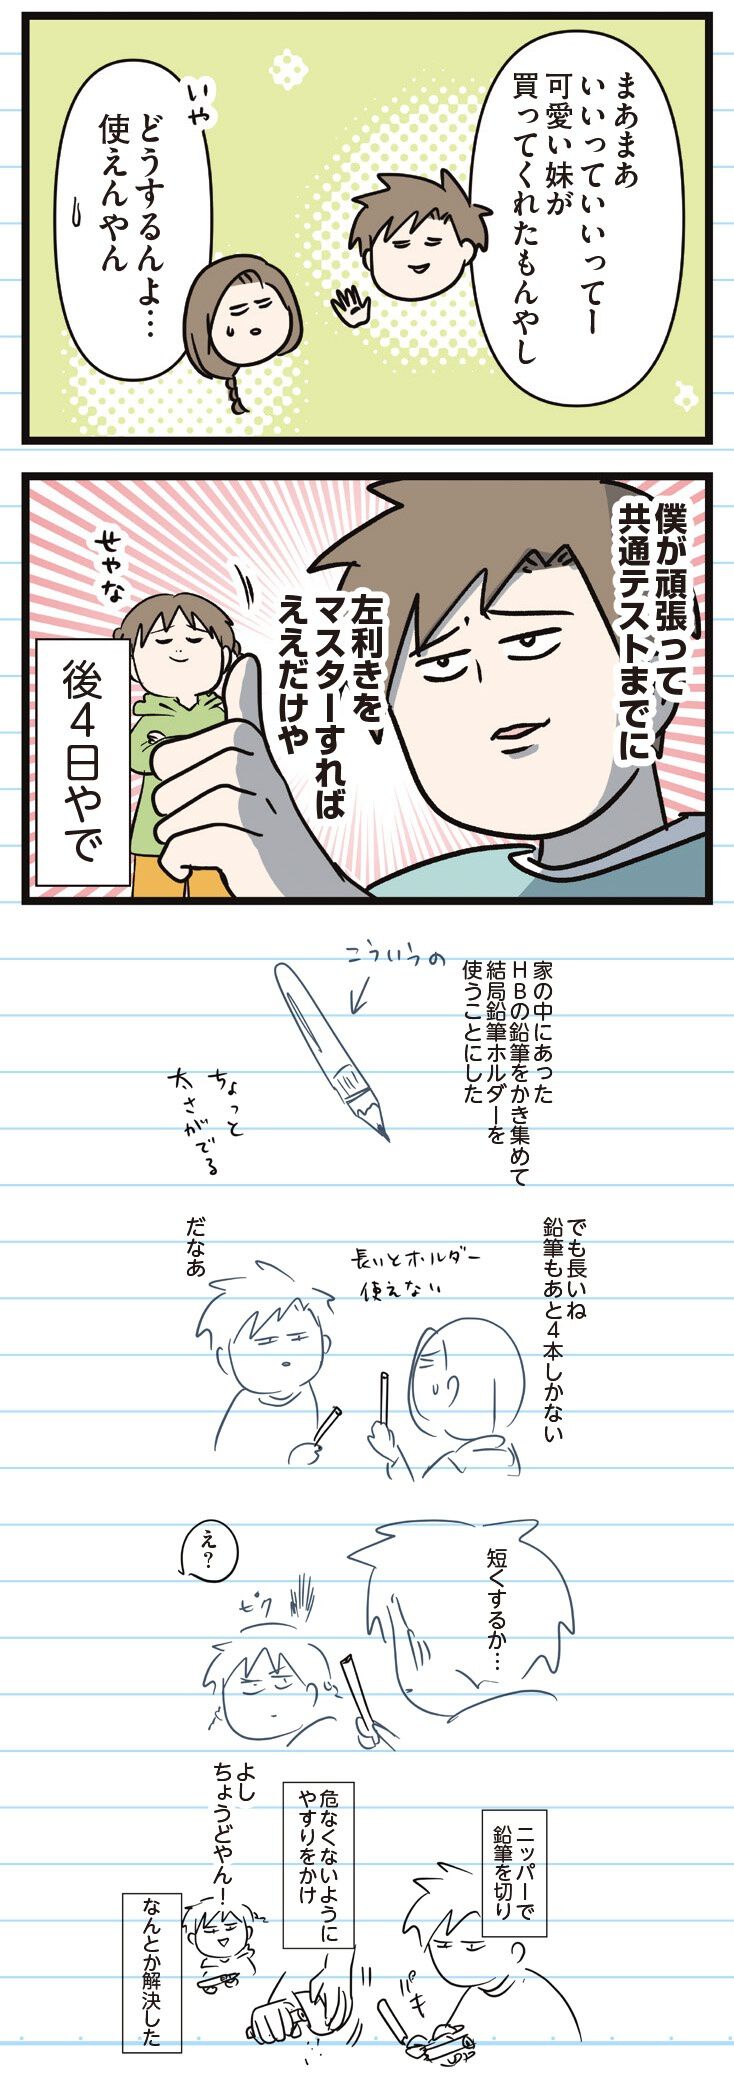 まあまあ
いいっていいってー
可愛い妹が
買ってくれたもんやし
いや
どうするんよ…
使えんやん
僕が頑張って
共通テストまでに
左利きを
マスターすれば
ええだけや
せやな
後4日やで
家の中にあった
HBの鉛筆をかき集めて
結局鉛筆ホルダーを
使うことにした
こういうの
ちょっと
太さがでる
でも長いね
鉛筆もあと4本しかない
長いとホルダー
使えない
だなあ
短くするか…
え?
ビク
ニッパーで
鉛筆を切り
パキ
危なくないように
やすりをかけ
よし
ちょうどやん!
なんとか解決した